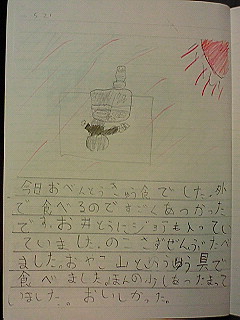 5.21
今日おべんとうきゅう食でした。外
で食べるのですごくあつかった
です。お弁とうにジョうも入ってい
ていました。のこさずぜんぶたべ
ました。おやこ山という具で
食べました。ほんの少しあたまって
いました。おいしかった。